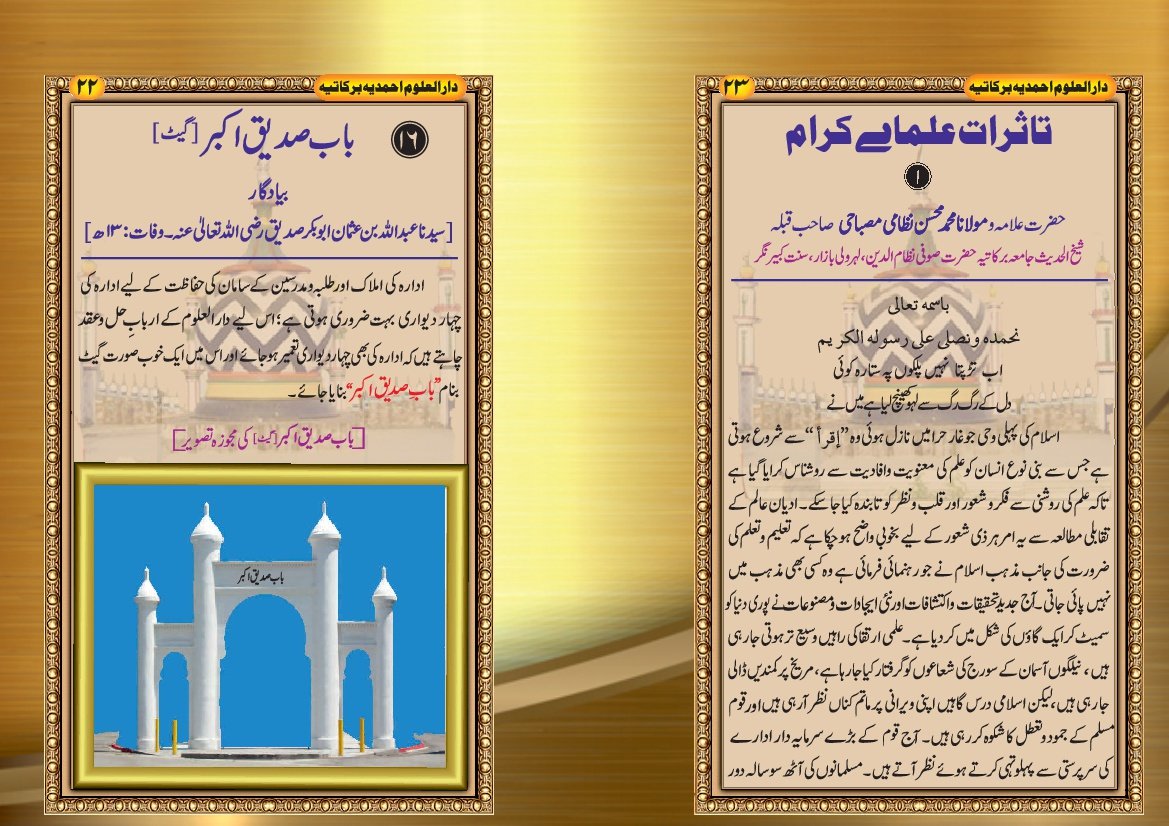 دارالعلوم احمدیہ برکاتیہ
۲۲
۱۶
باب صدیق اکبر [گیٹ]
بیادگار
[سیدنا عبداللہ بن عثمان ابوبکر صدیق رضی اللہ تعالیٰ عنہ۔ وفات: ۱۳ھ]
ادارہ کی املاک اور طلبہ و مدرسین کے سامان کی حفاظت کے لیے ادارہ کی
چہار دیواری بہت ضروری ہوتی ہے؛ اس لیے دارالعلوم کے اربابِ حل و عقد
چاہتے ہیں کہ ادارہ کی بھی چہار دیواری تعمیر ہوجائے اور اس میں ایک خوب صورت گیٹ
بنام "بابِ صدیق اکبر" بنایا جائے۔
[باب صدیق اکبر [گیٹ] کی مجوزہ تصویر]
باب صدیق اکبر
دارالعلوم احمدیہ برکاتیہ
۲۳
تاثرات علماے کرام
۱
حضرت علامہ و مولانا محمد محسن نظامی مصباحی صاحب قبلہ
شیخ الحدیث جامعہ برکاتیہ حضرت صوفی نظام الدین، لہرولی بازار، سنت کبیر نگر
باسمہ تعالی
نحمدہ ونصلی علی رسولہ الکریم
اب تڑپتا نہیں پلکوں پہ ستارہ کوئی
دل کے رگ رگ سے لہو کھینچ لیا ہے میں نے
اسلام کی پہلی وحی جو غار حرا میں نازل ہوئی وہ "إقرأ" سے شروع ہوتی
ہے جس سے بنی نوع انسان کو علم کی معنویت و افادیت سے روشناس کرایا گیا ہے
تاکہ علم کی روشنی سے فکر و شعور اور قلب و نظر کو تابندہ کیا جاسکے۔ ادیان عالم کے
تقابلی مطالعہ سے یہ امر ہر ذی شعور کے لیے بخوبی واضح ہوچکا ہے کہ تعلیم و تعلم کی
ضرورت کی جانب مذہب اسلام نے جو رہنمائی فرمائی ہے وہ کسی بھی مذہب میں
نہیں پائی جاتی۔ آج جدید تحقیقات و اکتشافات اور نئی ایجادات و مصنوعات نے پوری دنیا کو
سمیٹ کر ایک گاؤں کی شکل میں کردیا ہے۔ علمی ارتقا کی راہیں وسیع تر ہوتی جارہی
ہیں، نیلگوں آسمان کے سورج کی شعاعوں کو گرفتار کیا جارہا ہے، مریخ پر کمندیں ڈالی
جارہی ہیں، لیکن اسلامی درس گاہیں اپنی ویرانی پر ماتم کناں نظر آرہی ہیں اور قوم
مسلم کے جمود و تعطل کا شکوہ کررہی ہیں۔ آج قوم کے بڑے سرمایہ دار ادارے
کی سرپرستی سے پہلوتہی کرتے ہوئے نظر آتے ہیں۔ مسلمانوں کی آٹھ سو سالہ دور